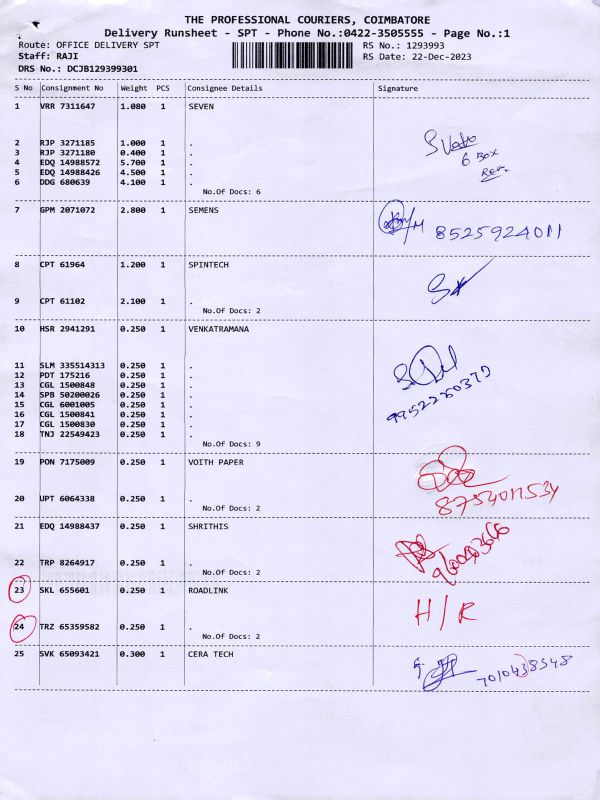 THE PROFESSIONAL COURIERS, COIMBATORE
Delivery Runsheet - SPT - Phone No.:0422-3505555 - Page No.:1
Route: OFFICE DELIVERY SPT RS No.: 1293993
Staff: RAJI RS Date: 22-Dec-2023
DRS No.: DCJB129399301
S No Consignment No Weight PCS Consignee Details Signature
1 VRR 7311647 1.080 1 SEVEN
2 RJP 3271185 1.000 1 .
3 RJP 3271180 0.400 1 .
4 EDQ 14988572 5.700 1 .
5 EDQ 14988426 4.500 1 .
6 DDG 680639 4.100 1 .
6 Box
No.Of Docs: 6
7 GPM 2071072 2.800 1 SEMENS
8525924011
8 CPT 61964 1.200 1 SPINTECH
9 CPT 61102 2.100 1 .
No.Of Docs: 2
10 HSR 2941291 0.250 1 VENKATRAMANA
11 SLM 335514313 0.250 1 .
12 PDT 175216 0.250 1 .
13 CGL 1500848 0.250 1 .
14 SPB 50200026 0.250 1 .
15 CGL 6001005 0.250 1 .
16 CGL 1500841 0.250 1 .
17 CGL 1500830 0.250 1 .
18 TNJ 22549423 0.250 1 .
No.Of Docs: 9
19 PON 7175009 0.250 1 VOITH PAPER
20 UPT 6064338 0.250 1 .
No.Of Docs: 2
21 EDQ 14988437 0.250 1 SHRITHIS
22 TRP 8264917 0.250 1 .
No.Of Docs: 2
23 SKL 655601 0.250 1 ROADLINK
H/R
24 TRZ 65359582 0.250 1 .
No.Of Docs: 2
25 SVK 65093421 0.300 1 CERA TECH
7010438348